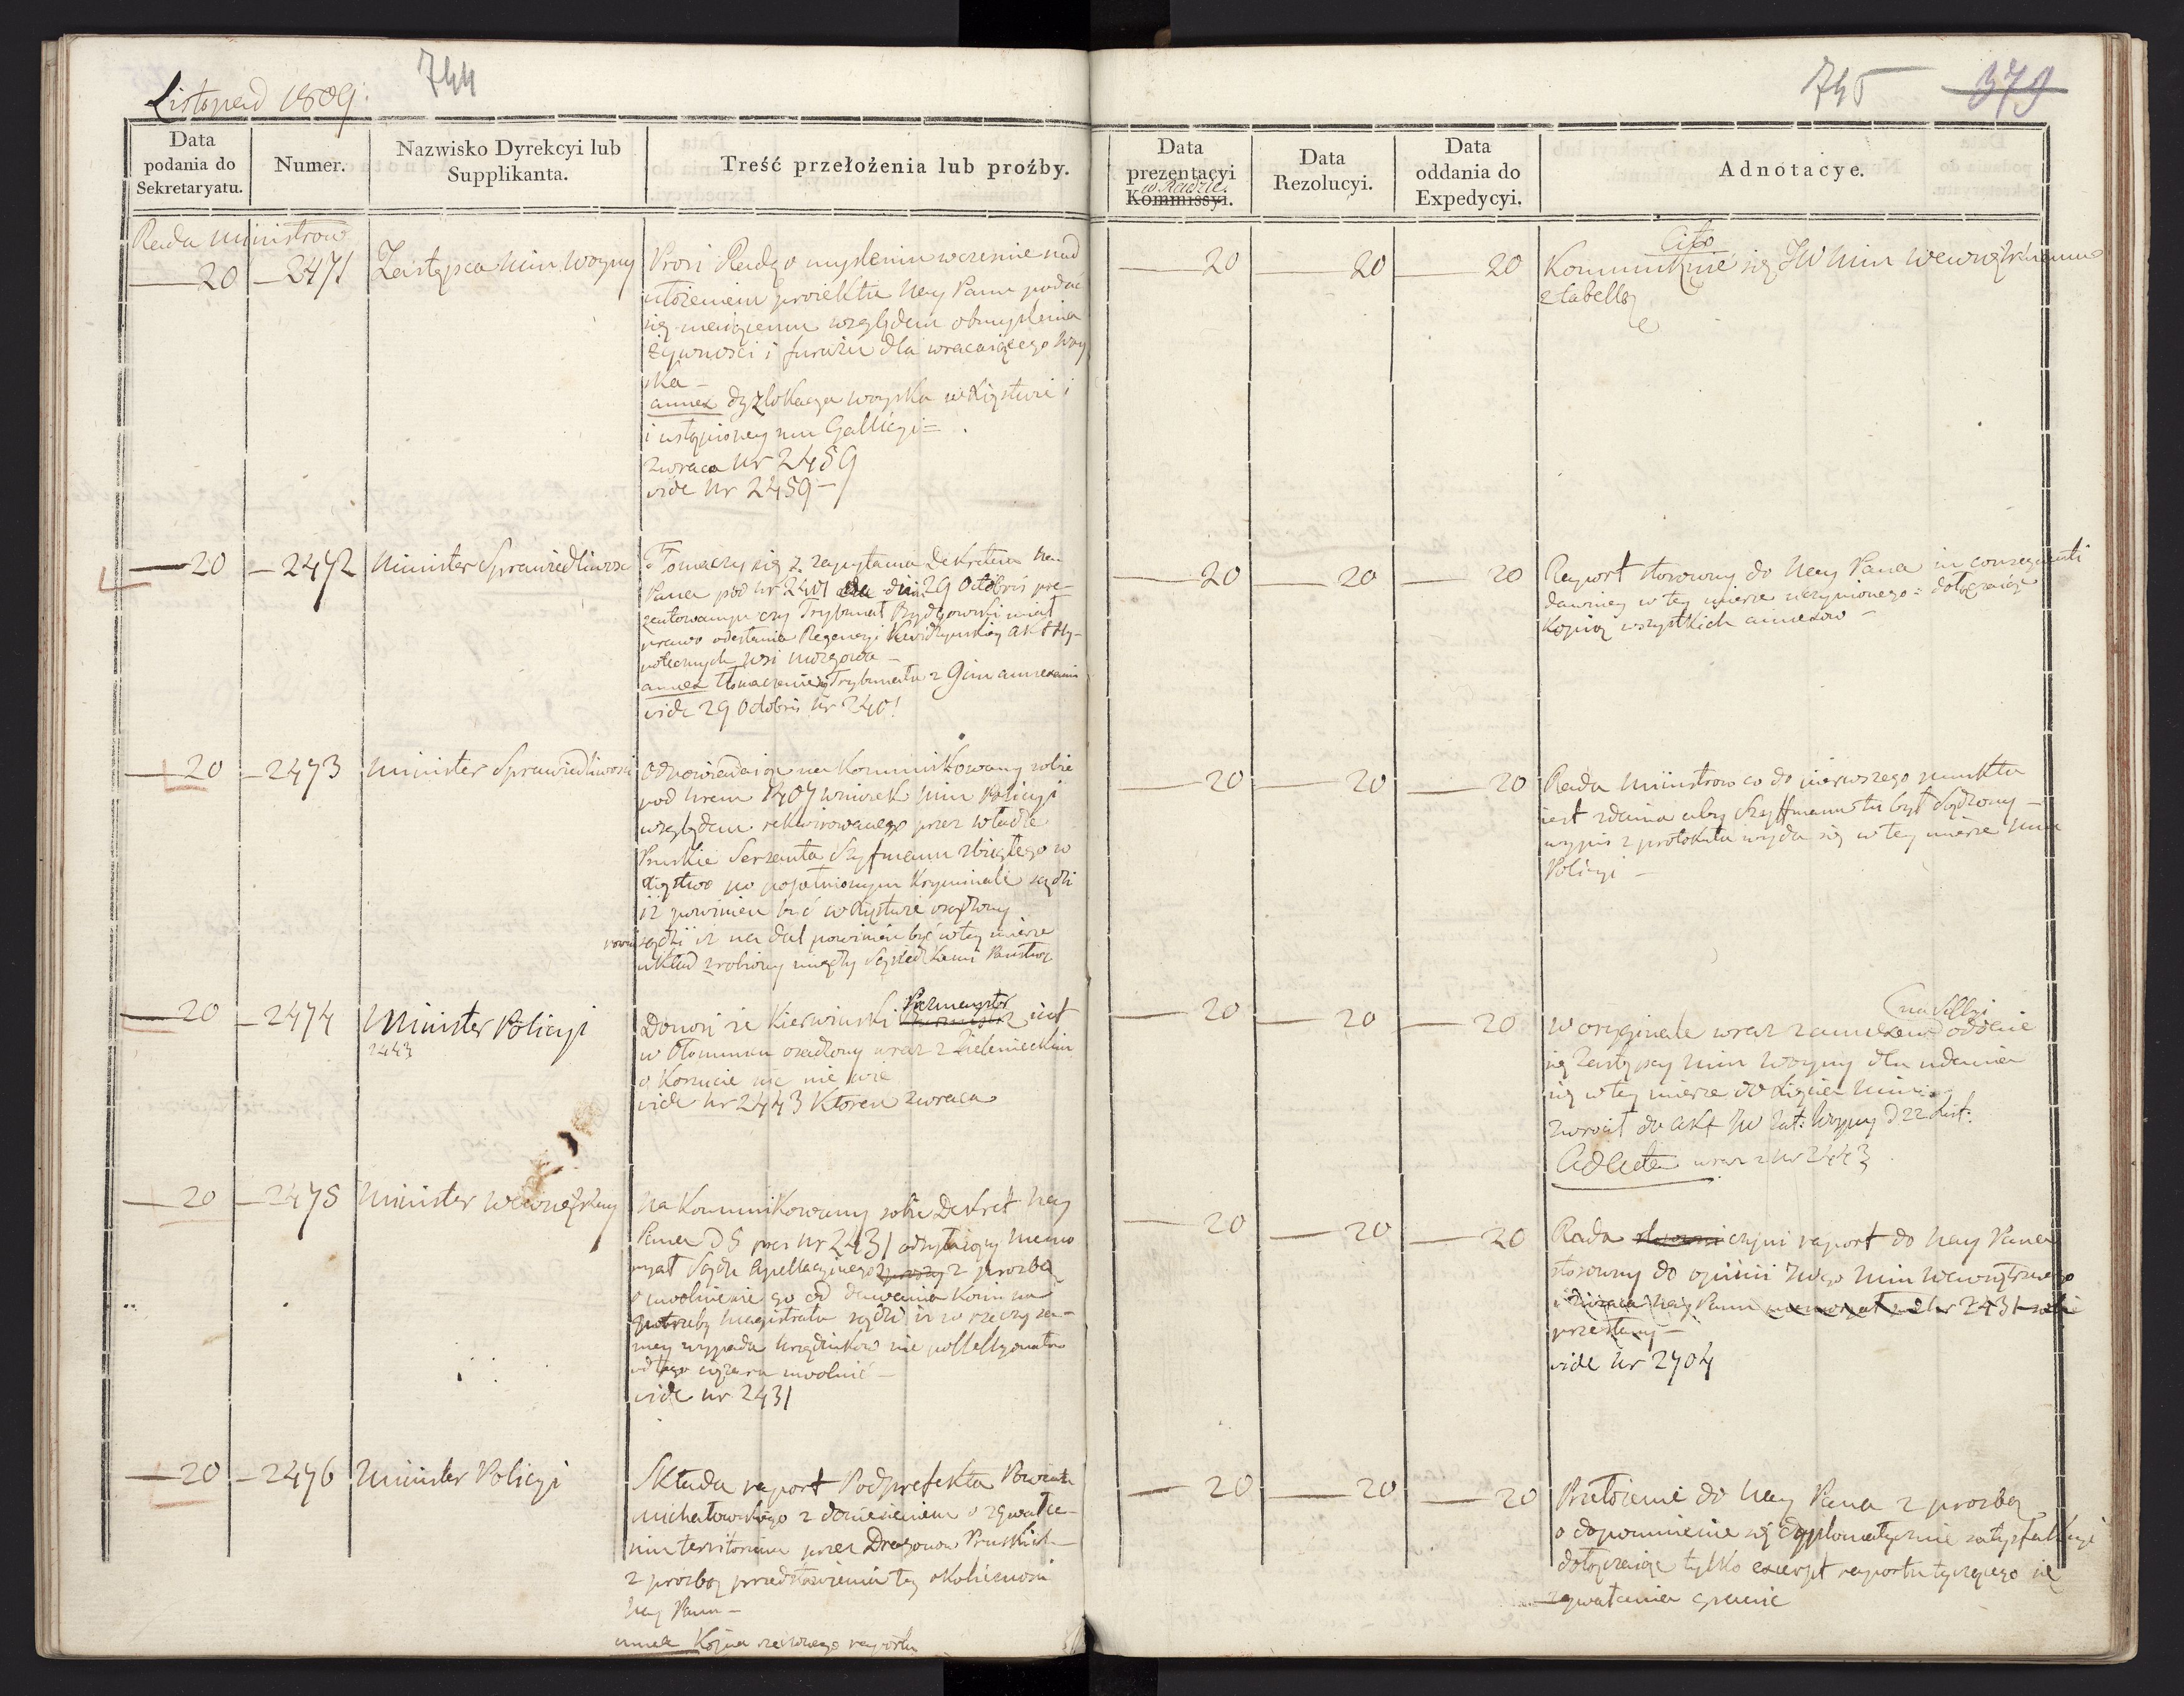 Listopad 1809:
744
Data podania do Sekretaryatu.
Numer.
Nazwisko Dyrekcyi lub Supplikanta.
Treść przełożenia lub proźby.
Rada Ministrow
20 — 2471 Zastępca Min Woyny
Prosi Radę o myslenia wczesnie nad
ułożeniem proiektu Nay Panu podać
się maiącemu względem obmyslenia
żywnosci i furażu dla wracaiącego Woy
ska —
annex dyzlokacya woyska w Xięstwie i
i ustąpioney mu Gallicyi =
zwraca Nr 2459
vide Nr 2459 —
20 — 2472 Minister Sprawiedliwosc
Tłomaczy się z zapytania Dekretem Nay
Pana pod Nr 2401 die 29 Octobris pre-
zentowanym czy Trybunał Bydgowski miał
prawo odesłania Regencyi Kwidzynskiey Akt Hy-
potecznych wsi
annex tłomaczenie Trybunału z 9cim annexami
vide 29 Octobris Nr 2401
20 — 2473 Minister Sprawiedliwosci
Odpowiadaiąc na Kommunikowany sobie
pod Nrem wniosek Min Policyi
względem rekwirowanego przez władze
Pruskie Serzanta Szyfmann zbiegłego w
Xięstwo po popełnionym Kryminale sądzi
iż powinien być w Xięstwie osądzony
sądzi iż na dal powinien być w tey mierze
układ zrobiony między Sąsiedzkemi Państwy
20 — 2474 Minister Policyi
2443
Donosi ze Kierwinski iest
w Ołomuncu osadzony wraz z Zielenieckim
o Korsucie nic nie wie
vide Nr 2443 ktoren zwraca
20 — 2475 Minister Wewnętrzny
Na Kommunikowany sobie Dekret Nay
Pana D 5 prs Nr 2431 odsyłaiący Memo
ryał Sądu Apellacyinego z prozbą
o uwolnienie go od dawania Koni na
potrzeby Magistratu sądzi iż w rzeczy sa-
mey wypada Urzędnikow nie possessyonatow
od tego ciężaru uwolnić —
vide Nr 2431
20 — 2476 Minister Policyi
Składa raport Podprefekta Powiatu
Michałowskiego z doniesieniem o zgwałce-
niu territorium przez Dragonow Pruskich
z prozbą przedstawienia tey okolicznosci
Nay Panu —
annex Kopia rzeczonego raportu
745
379
Data prezentacyi w Radzie. Kommissyi.
Data Rezolucyi.
Data oddania do Expedycyi.
Adnotacye.
20 — 20 — 20
Cito
Kommunikuie się JW Min Wewnętrznemu
z tabellą
20 — 20 — 20
Raport stosowny do Nay Pana in consequenti
dawniey w tey mierze uczynionego = dołączaiąc
kopią wszystkich annexow —
20 — 20 — 20
Rada Ministrow co do pierwszego punktu
iest zdania aby Szyffmann tu był sądzony —
wypis z protokułu wyda się w tey mierze Min
Policyi —
20 — 20 — 20
na Sessyi
W oryginale wraz z annexem oddaie
się Zastępcy Min Woyny dla udania
się w tey mierze do Xięcia Min:
zwrocił do Akt JW Zast: Woyny D 22 List:
Ad Acta wraz z Nr 2443
20 — 20 — 20
Rada czyni raport do Nay Pana
stosowny do opinii JWgo Min Wewnętrznego
i zwraca Nay Panu memoryał ad Nr 2431 sobie
przesłany —
vide Nr 2704
20 — 20 — 20
Przełożenie do Nay Pana z prozbą
o dopomnienie się dyplomatycznie satysfakcyi
dołączaiąc tylko excerpt raportu tyczącego się
zgwałcenia granic